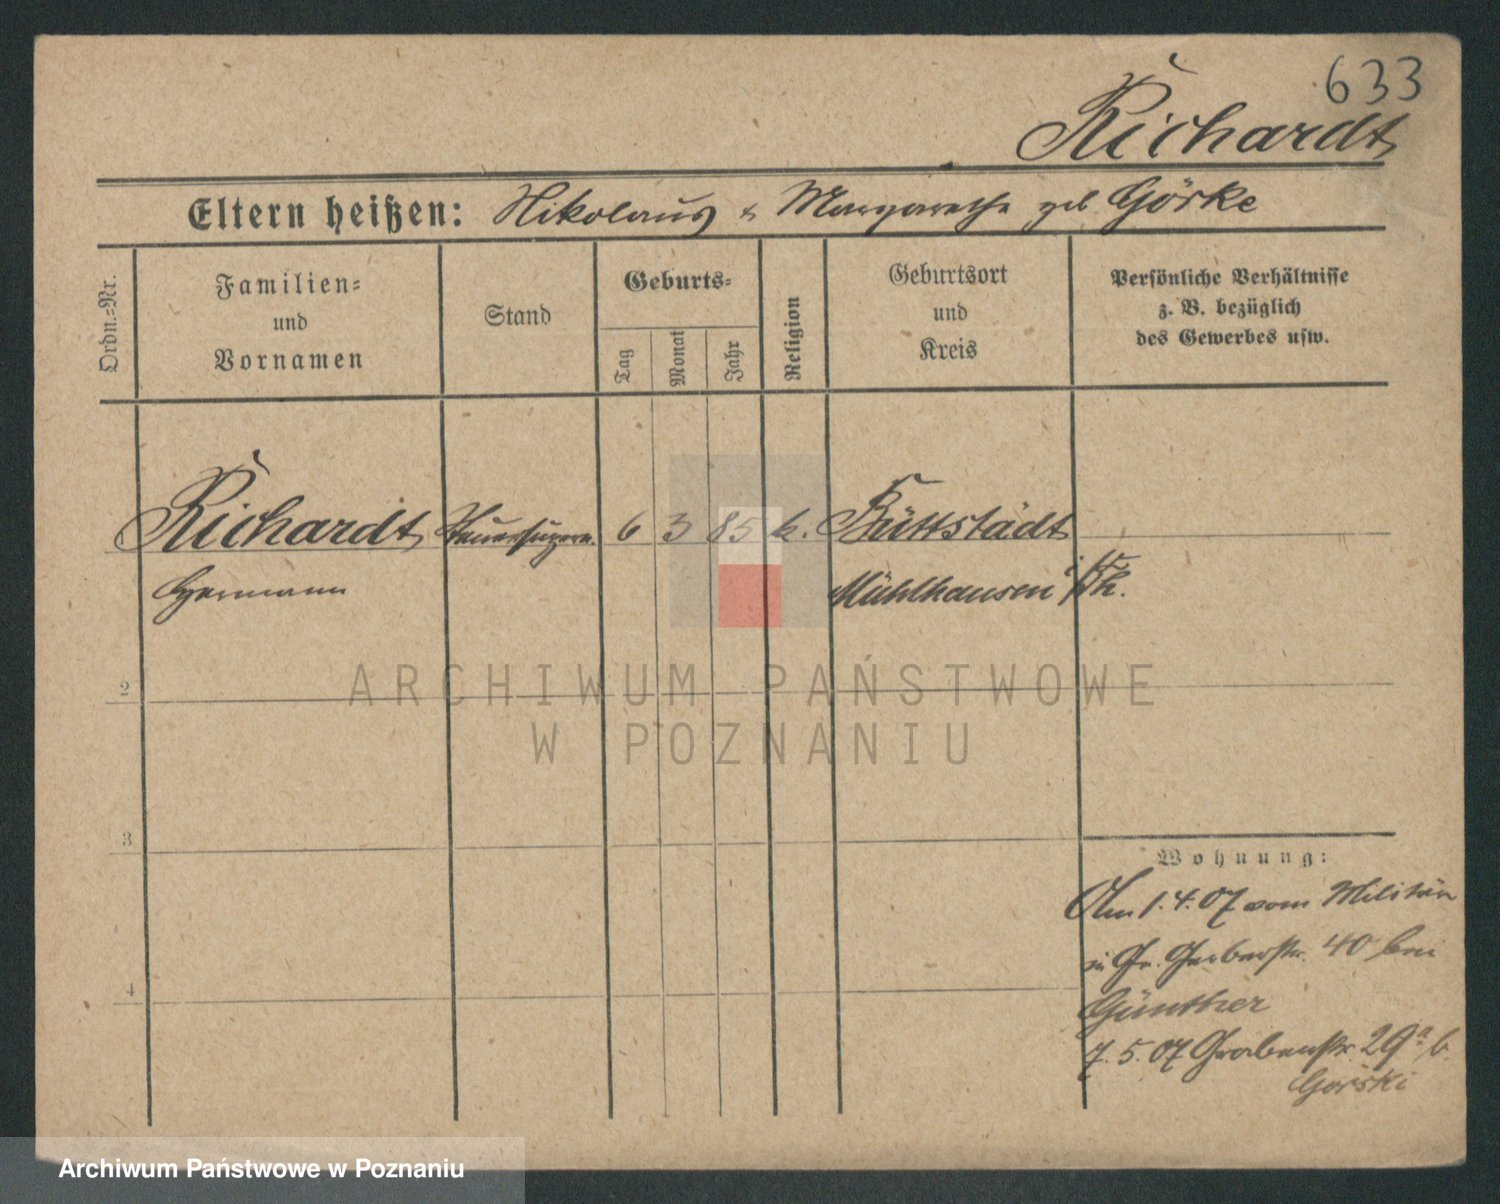 633
Richardt
Eltern heißen: Nikolaus & Margarethe geb. Görke
Ordn.-Nr.
Familien-
und
Vornamen
Stand
Geburts-
Tag
Monat
Jahr
Religion
Geburtsort
und
Kreis
Persönliche Verhältnisse
z. B. bezüglich
des Gewerbes usw.
Richardt 6 3 85 k. Büttstädt
Hermann Mühlhausen
ARCHIWUM PAŃSTWOWE
W POZNANIU
2
3
4
Wohnung:
Am 1.4.07 vom Militär
in Gr. Gerberstr. 40 bei
Günther
7.5.07 Grabenstr. 29a b.
Górski
Archiwum Państwowe w Poznaniu